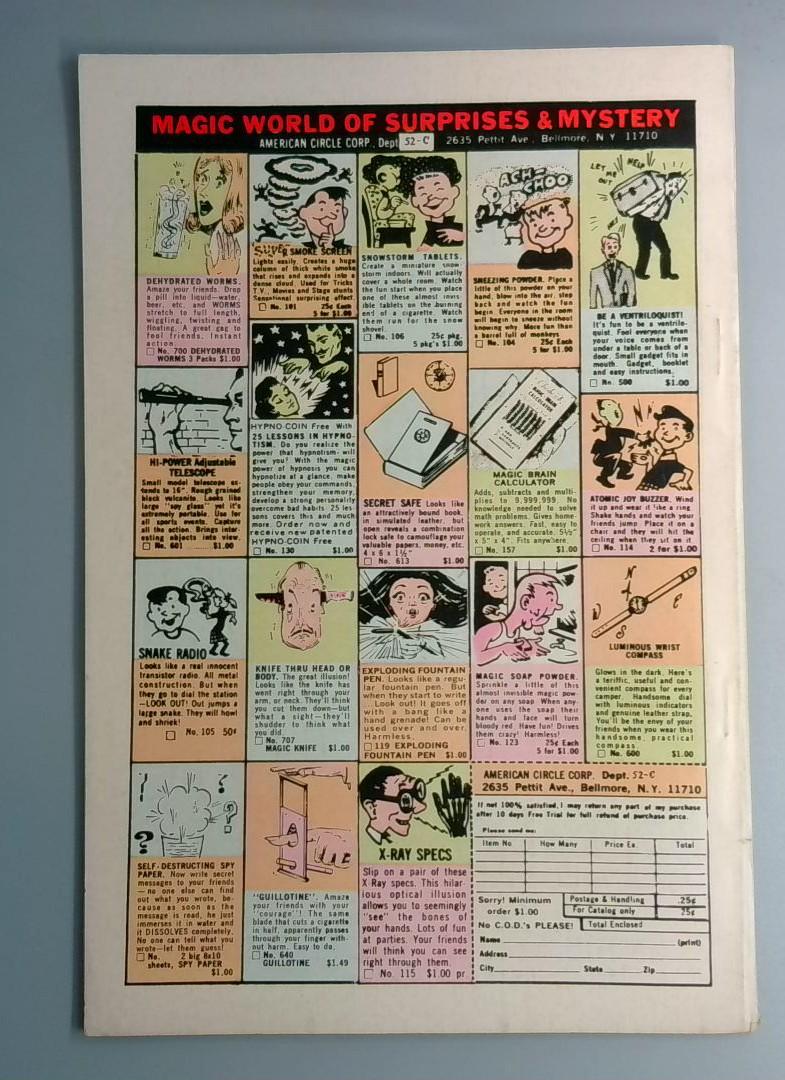 MAGIC WORLD OF SURPRISES & MYSTERY
AMERICAN CIRCLE CORP., Dept 52-C 2635 Pettit Ave., Bellmore, N Y 11710
DEHYDRATED WORMS.
Amaze your friends. Drop
a pill into liquid—water,
beer, etc. and WORMS
stretch to full length,
wiggling, twisting and
floating. A great gag to
fool friends. Instant
action.
No. 700 DEHYDRATED
WORMS 3 Packs $1.00
SUPER SMOKE SCREEN
Lights easily. Creates a huge
column of thick white smoke
that rises and expands into a
dense cloud. Used for Tricks
T.V., Movies and Stage stunts
Sensational surprising effect.
No. 101 25¢ Each
5 for $1.00
SNOWSTORM TABLETS.
Create a miniature snow-
storm indoors. Will actually
cover a whole room. Watch
the fun start when you place
one of these almost invis-
ible tablets on the burning
end of a cigarette. Watch
them run for the snow
shovel.
No. 106 25¢ pkg.
5 pkg's $1.00
ACH-CHOO
SNEEZING POWDER. Place a
little of this powder on your
hand, blow into the air, step
back and watch the fun
begin. Everyone in the room
will begin to sneeze without
knowing why. More fun than
a barrel full of monkeys
No. 104 25¢ Each
5 for $1.00
LET ME OUT
HELP
BE A VENTRILOQUIST!
It's fun to be a ventrilo-
quist. Fool everyone when
your voice comes from
under a table or back of a
door. Small gadget fits in
mouth. Gadget, booklet
and easy instructions.
No. 500 $1.00
HI-POWER Adjustable
TELESCOPE
Small model telescope ex-
tends to 16". Rough grained
black vulcanite. Looks like
large "spy glass" yet it's
extremely portable. Use for
all sports events. Capture
all the action. Brings inter-
esting objects into view.
No. 601 ...... $1.00
HYPNO-COIN Free With
25 LESSONS IN HYPNO-
TISM. Do you realize the
power that hypnotism will
give you? With the magic
power of hypnosis you can
hypnotize at a glance, make
people obey your commands,
strengthen your memory,
develop a strong personality
overcome bad habits. 25 les-
sons covers this and much
more. Order now and
receive new patented
HYPNO-COIN Free
No. 130 $1.00
SECRET SAFE Looks like
an attractively bound book,
in simulated leather, but
open reveals a combination
lock safe to camouflage your
valuable papers, money, etc.
4 x 6 x 1½"
No. 613 $1.00
MAGIC BRAIN
CALCULATOR
MAGIC BRAIN
CALCULATOR
Adds, subtracts and multi-
plies to 9,999,999. No
knowledge needed to solve
math problems. Gives home-
work answers. Fast, easy to
operate, and accurate. 5½"
x 5" x 4". Fits anywhere
No. 157 $1.00
ATOMIC JOY BUZZER. Wind
it up and wear it like a ring
Shake hands and watch your
friends jump Place it on a
chair and they will hit the
ceiling when they sit on it.
No. 114 2 for $1.00
SNAKE RADIO
Looks like a real innocent
transistor radio. All metal
construction. But when
they go to dial the station
—LOOK OUT! Out jumps a
large snake. They will howl
and shriek!
No. 105 50¢
KNIFE THRU HEAD OR
BODY. The great illusion!
Looks like the knife has
went right through your
arm, or neck. They'll think
you cut them down—but
what a sight—they'll
shudder to think what
you did.
No. 707
MAGIC KNIFE $1.00
EXPLODING FOUNTAIN
PEN. Looks like a regu-
lar fountain pen. But
when they start to write
.. Look out! It goes off
with a bang like a
hand grenade! Can be
used over and over.
Harmless.
119 EXPLODING
FOUNTAIN PEN $1.00
MAGIC SOAP POWDER.
Sprinkle a little of this
almost invisible magic pow-
der on any soap When any-
one uses the soap their
hands and face will turn
bloody red. Have fun! Drives
them crazy! Harmless!
No. 123 25¢ Each
5 for $1.00
N
E
S
LUMINOUS WRIST
COMPASS
Glows in the dark. Here's
a terrific, useful and con-
venient compass for every
camper. Handsome dial
with luminous indicators
and genuine leather strap.
You'll be the envy of your
friends when you wear this
handsome, practical
compass
No. 600 $1.00
! ? ?
SELF-DESTRUCTING SPY
PAPER. Now write secret
messages to your friends
—no one else can find
out what you wrote, be-
cause as soon as the
message is read, he just
immerses it in water and
it DISSOLVES completely.
No one can tell what you
wrote—let them guess!
No. 2 big 8x10
sheets, SPY PAPER
$1.00
"GUILLOTINE". Amaze
your friends with your
"courage"! The same
blade that cuts a cigarette
in half, apparently passes
through your finger with-
out harm. Easy to do.
No. 640
GUILLOTINE $1.49
X-RAY SPECS
Slip on a pair of these
X Ray specs. This hilar-
ious optical illusion
allows you to seemingly
"see" the bones of
your hands. Lots of fun
at parties. Your friends
will think you can see
right through them.
No. 115 $1.00 pr
AMERICAN CIRCLE CORP. Dept. 52-C
2635 Pettit Ave., Bellmore, N.Y. 11710
If not 100% satisfied, I may return any part of my purchase
after 10 days Free Trial for full refund of purchase price.
Please send me:
Item No How Many Price Ea. Total
Sorry! Minimum
order $1.00
Postage & Handling .25¢
For Catalog only 25¢
No C.O.D.'s PLEASE! Total Enclosed
Name (print)
Address
City State Zip